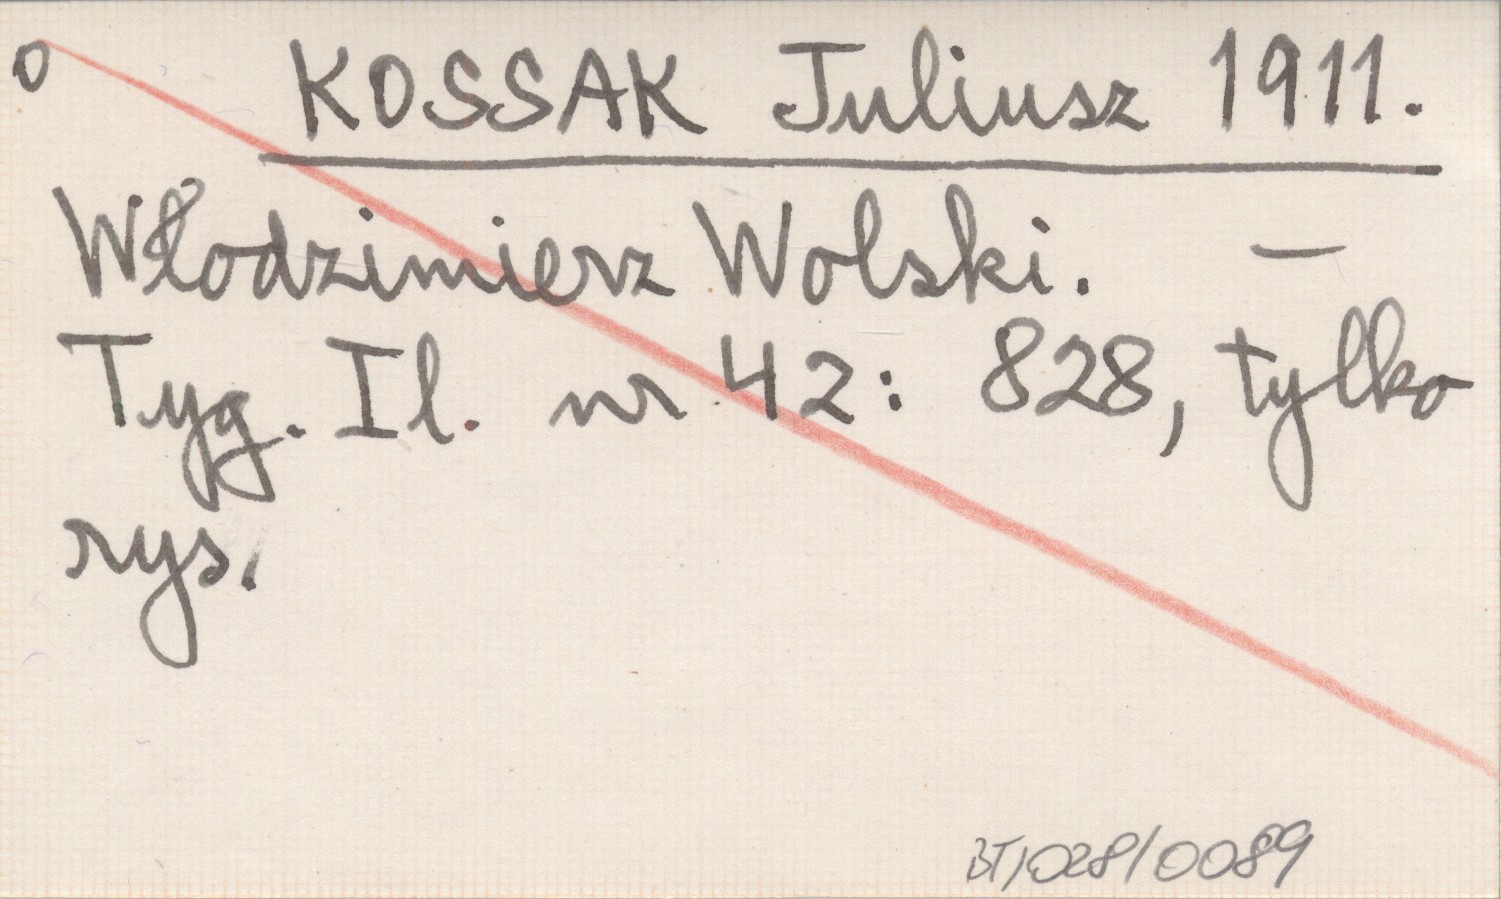 o KOSSAK Juliusz 1911.
Włodzimierz Wolski. —
Tyg. Il. nr 42: 828, tylko
rys.
BT/028/0089